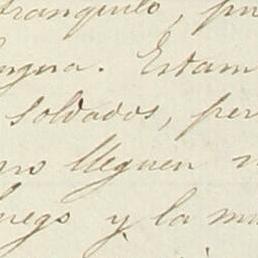 tranquilo, pu
Estam
soldados, per
no lleguen
y la mu